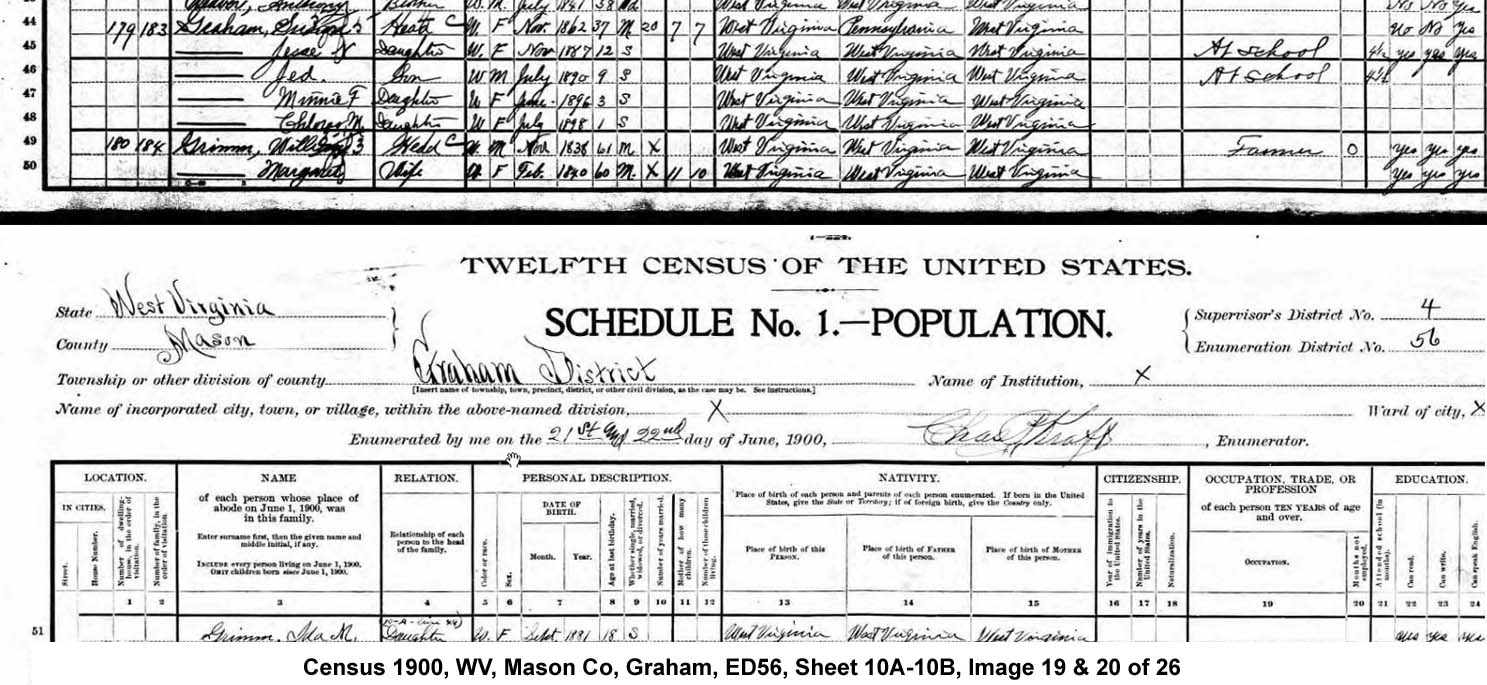 Anthony W. M. July 1841 58 West Virginia West Virginia West Virginia No No Yes
44 179 183 Graham, Head W. F Nov. 1862 37 M 20 7 7 West Virginia Pennsylvania West Virginia No No Yes
45 Daughter W. F Nov 1887 12 S West Virginia West Virginia West Virginia At school yes yes yes
46 Jed. Son W M July 1890 9 S West Virginia West Virginia West Virginia At school
47 Minnie F Daughter W. F June 1896 3 S West Virginia West Virginia West Virginia
48 M. Daughter W F July 1898 1 S West Virginia West Virginia West Virginia
49 180 184 Grimm, Head W. M Nov 1838 61 M X West Virginia West Virginia West Virginia Farmer O yes yes yes
50 Margaret Wife W F Feb. 1840 60 M. X 11 10 West Virginia West Virginia West Virginia yes yes yes
TWELFTH CENSUS OF THE UNITED STATES.
State West Virginia
SCHEDULE No. 1.—POPULATION.
Supervisor's District No. 4
County Mason
Enumeration District No. 56
Township or other division of county Graham District
Name of Institution, X
[Insert name of township, town, precinct, district, or other civil division, as the case may be. See instructions.]
Name of incorporated city, town, or village, within the above-named division, X
Ward of city, X
Enumerated by me on the 21st and 22nd day of June, 1900, Enumerator.
LOCATION.
IN CITIES.
Street.
House Number.
Number of dwelling-house, in the order of visitation.
Number of family, in the order of visitation.
NAME
of each person whose place of
abode on June 1, 1900, was
in this family.
Enter surname first, then the given name and
middle initial, if any.
INCLUDE every person living on June 1, 1900.
OMIT children born since June 1, 1900.
RELATION.
Relationship of each
person to the head
of the family.
PERSONAL DESCRIPTION.
Color or race.
Sex.
DATE OF
BIRTH.
Month. Year.
Age at last birthday.
Whether single, married, widowed, or divorced.
Number of years married.
Mother of how many children.
Number of these children living.
NATIVITY.
Place of birth of each person and parents of each person enumerated. If born in the United
States, give the State or Territory; if of foreign birth, give the Country only.
Place of birth of this
PERSON.
Place of birth of FATHER
of this person.
Place of birth of MOTHER
of this person.
CITIZENSHIP.
Year of immigration to the United States.
Number of years in the United States.
Naturalization.
OCCUPATION, TRADE, OR
PROFESSION
of each person TEN YEARS of age
and over.
OCCUPATION.
Months not employed.
EDUCATION.
Attended school (in months).
Can read.
Can write.
Can speak English.
1 2 3 4 5 6 7 8 9 10 11 12 13 14 15 16 17 18 19 20 21 22 23 24
51 Grimm, Ida M. Daughter W. F Sept. 1881 18 S West Virginia West Virginia West Virginia yes yes yes
Census 1900, WV, Mason Co, Graham, ED56, Sheet 10A-10B, Image 19 & 20 of 26